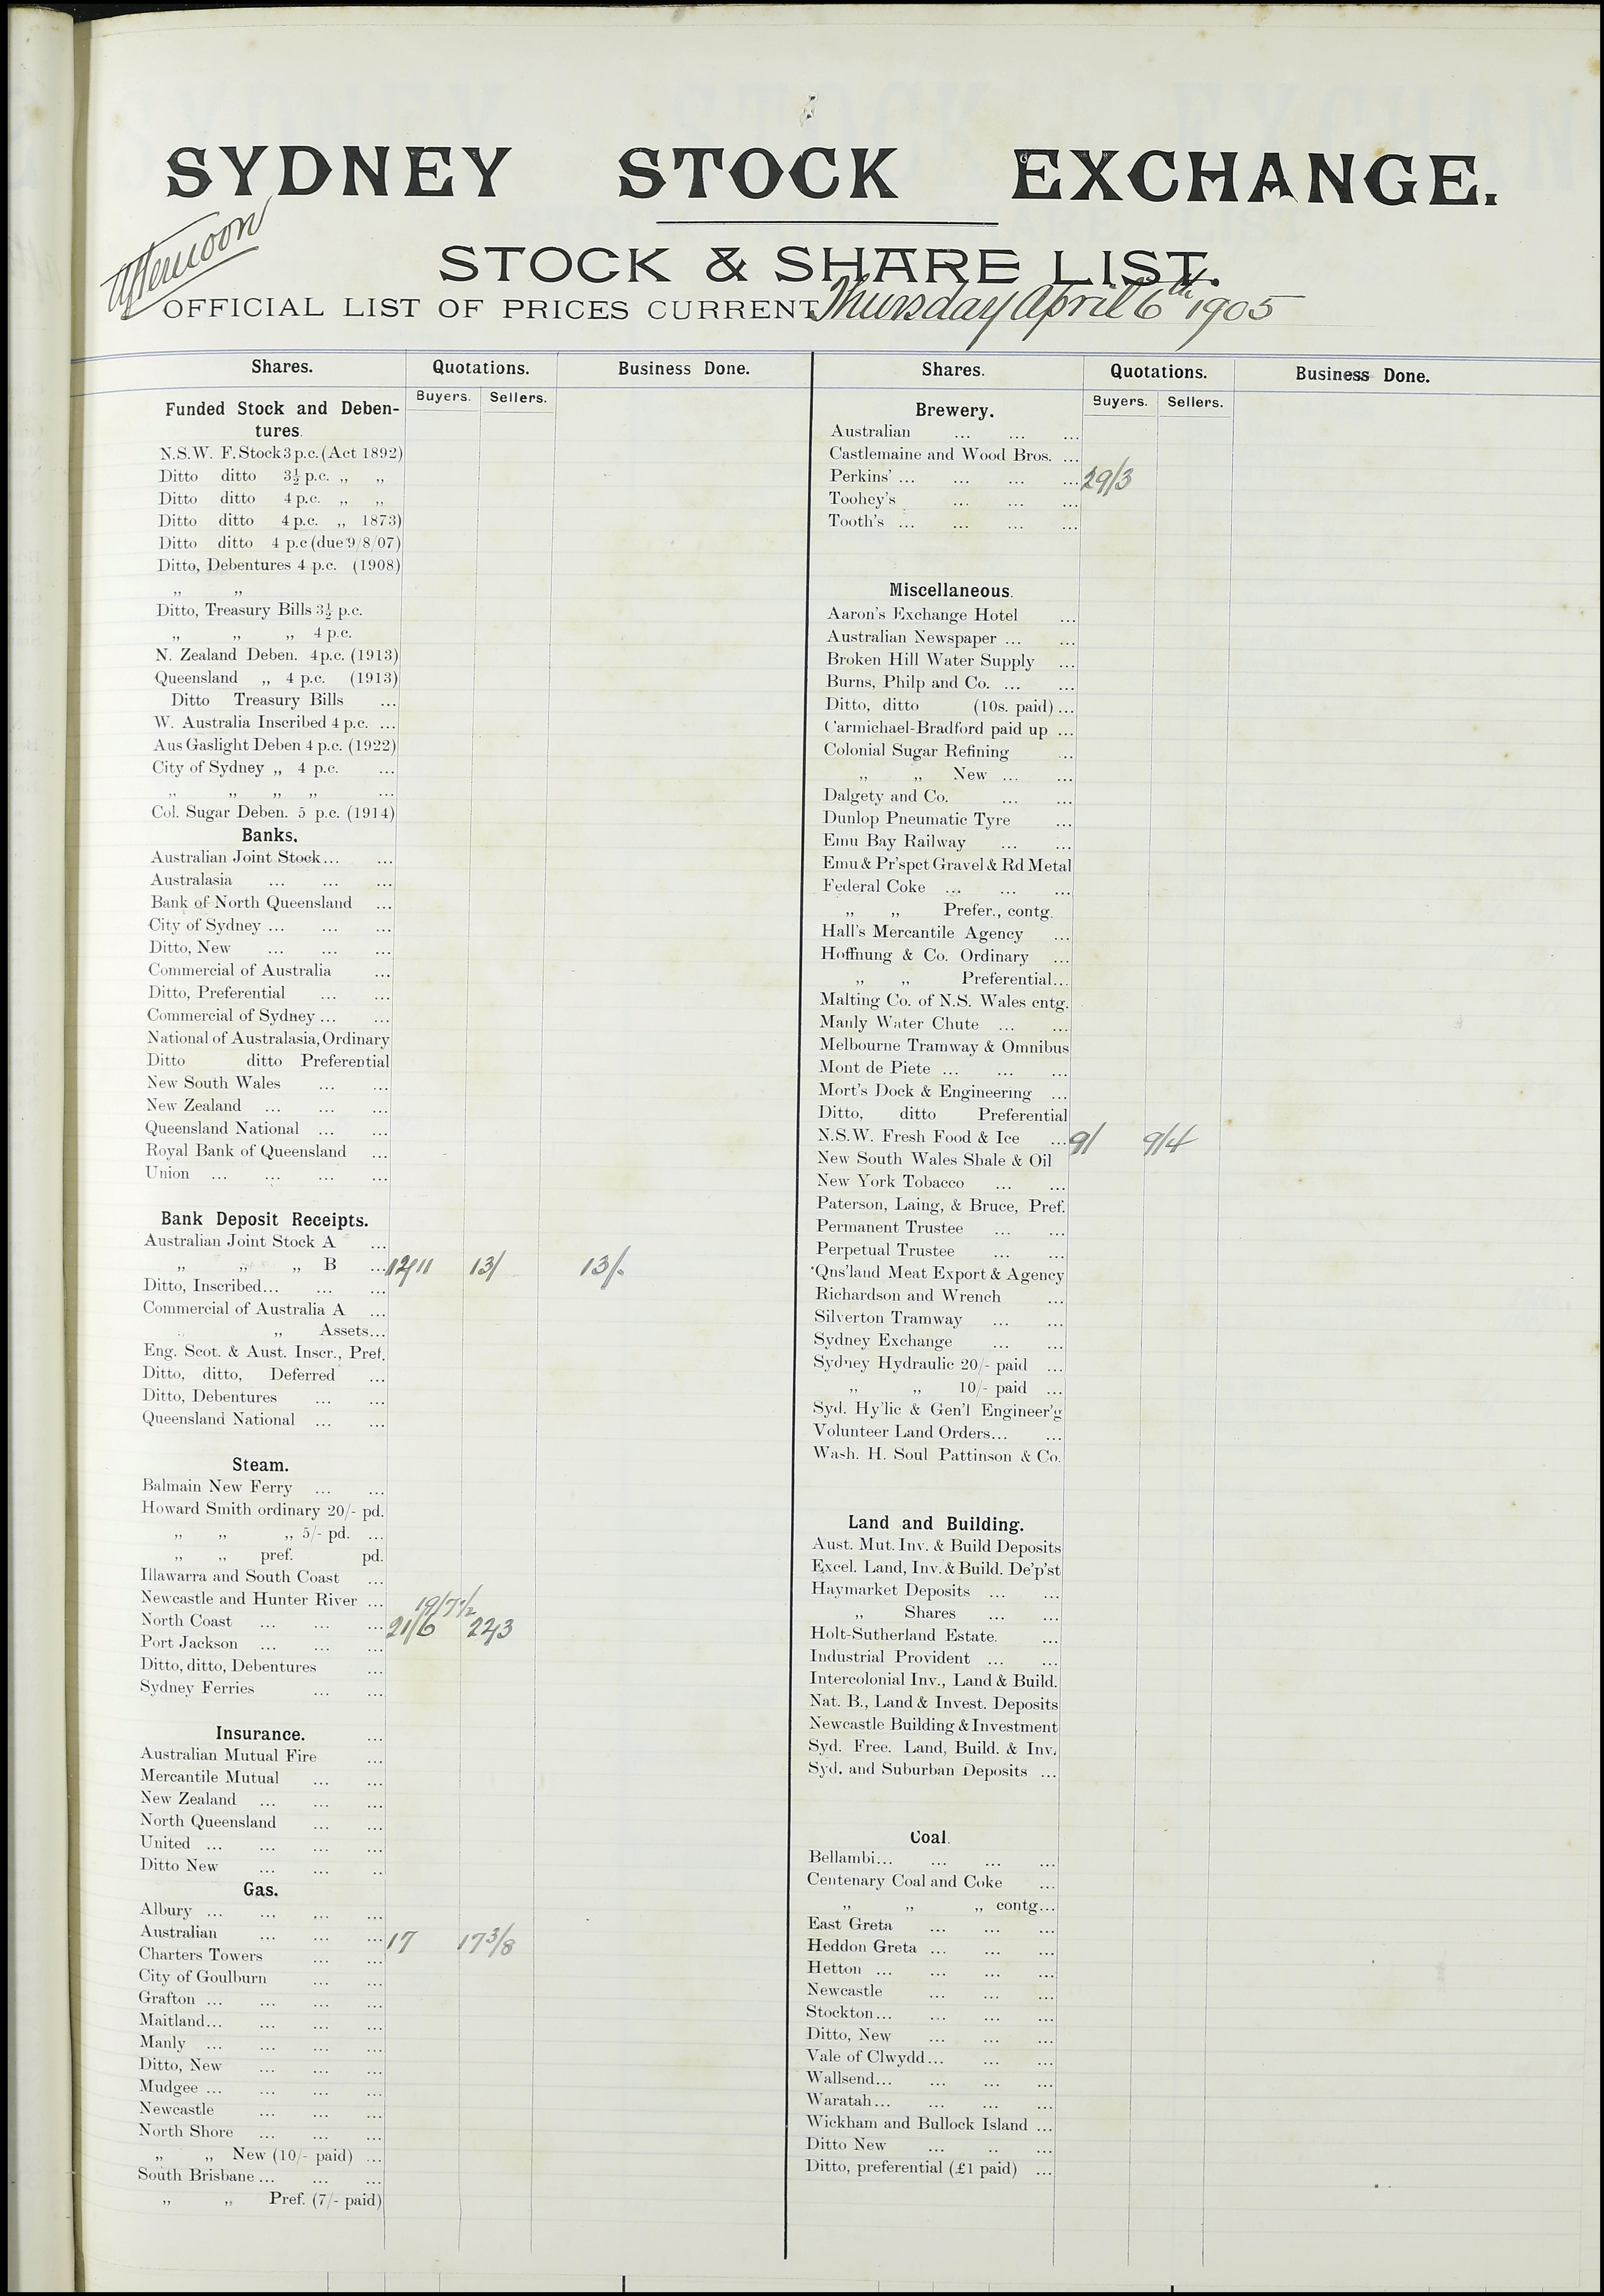 SYDNEY STOCK EXCHANGE.
Afternoon
STOCK & SHARE LIST.
OFFICIAL LIST OF PRICES CURRENT Thursday April 6th 1905
Shares. Quotations. Business Done.
Buyers. Sellers.
Funded Stock and Deben-
tures.
N.S.W. F. Stock 3 p.c. (Act 1892)
Ditto ditto 3½ p.c. „ „
Ditto ditto 4 p.c. „ „
Ditto ditto 4 p.c. „ 1873)
Ditto ditto 4 p.c (due 9/8/07)
Ditto, Debentures 4 p.c. (1908)
„ „
Ditto, Treasury Bills 3½ p.c.
„ „ „ 4 p.c.
N. Zealand Deben. 4 p.c. (1913)
Queensland „ 4 p.c. (1913)
Ditto Treasury Bills ...
W. Australia Inscribed 4 p.c. ...
Aus Gaslight Deben 4 p.c. (1922)
City of Sydney „ 4 p.c. ...
„ „ „ „ ...
Col. Sugar Deben. 5 p.c. (1914)
Banks.
Australian Joint Stock... ...
Australasia ... ... ...
Bank of North Queensland ...
City of Sydney ... ... ...
Ditto, New ... ... ...
Commercial of Australia ...
Ditto, Preferential ... ...
Commercial of Sydney ... ...
National of Australasia, Ordinary
Ditto ditto Preferential
New South Wales ... ...
New Zealand ... ... ...
Queensland National ... ...
Royal Bank of Queensland ...
Union ... ... ... ...
Bank Deposit Receipts.
Australian Joint Stock A ...
„ „ „ B ... 12/11 13/ 13/.
Ditto, Inscribed... ... ...
Commercial of Australia A ...
„ „ Assets...
Eng. Scot. & Aust. Inscr., Pref.
Ditto, ditto, Deferred ...
Ditto, Debentures ... ...
Queensland National ... ...
Steam.
Balmain New Ferry ... ...
Howard Smith ordinary 20/- pd.
„ „ „ 5/- pd. ...
„ „ pref. pd.
Illawarra and South Coast ...
Newcastle and Hunter River ... 19/7½
North Coast ... ... ... 21/6 22/3
Port Jackson ... ... ...
Ditto, ditto, Debentures ...
Sydney Ferries ... ...
Insurance. ...
Australian Mutual Fire ...
Mercantile Mutual ... ...
New Zealand ... ... ...
North Queensland ... ...
United ... ... ... ...
Ditto New ... ... ..
Gas.
Albury ... ... ... ...
Australian ... ... ... 17 17 3/8
Charters Towers ... ...
City of Goulburn ... ...
Grafton ... ... ... ...
Maitland... ... ... ...
Manly ... ... ... ...
Ditto, New ... ... ...
Mudgee ... ... ... ...
Newcastle ... ... ...
North Shore ... ... ...
„ „ New (10/- paid) ...
South Brisbane ... ... ...
„ „ Pref. (7/- paid)
Shares. Quotations. Business Done.
Buyers. Sellers.
Brewery.
Australian ... ... ...
Castlemaine and Wood Bros. ...
Perkins' ... ... ... ... 29/3
Toohey's ... ... ...
Tooth's ... ... ... ...
Miscellaneous.
Aaron's Exchange Hotel ...
Australian Newspaper ... ...
Broken Hill Water Supply ...
Burns, Philp and Co. ... ...
Ditto, ditto (10s. paid) ...
Carmichael-Bradford paid up ...
Colonial Sugar Refining ...
„ „ New ... ...
Dalgety and Co. ... ...
Dunlop Pneumatic Tyre ...
Emu Bay Railway ... ...
Emu & Pr'spct Gravel & Rd Metal
Federal Coke ... ... ...
„ „ Prefer., contg.
Hall's Mercantile Agency ...
Hoffnung & Co. Ordinary ...
„ „ Preferential...
Malting Co. of N.S. Wales cntg.
Manly Water Chute ... ...
Melbourne Tramway & Omnibus
Mont de Piete ... ... ...
Mort's Dock & Engineering ...
Ditto, ditto Preferential
N.S.W. Fresh Food & Ice ... 9/ 9/4
New South Wales Shale & Oil
New York Tobacco ... ...
Paterson, Laing, & Bruce, Pref.
Permanent Trustee ... ...
Perpetual Trustee ... ...
Qns'land Meat Export & Agency
Richardson and Wrench ...
Silverton Tramway ... ...
Sydney Exchange ... ...
Sydney Hydraulic 20/- paid ...
„ „ 10/- paid ...
Syd. Hy'lic & Gen'l Engineer'g
Volunteer Land Orders... ...
Wash. H. Soul Pattinson & Co.
Land and Building.
Aust. Mut. Inv. & Build Deposits
Excel. Land, Inv. & Build. De'p'st
Haymarket Deposits ... ...
„ Shares ... ...
Holt-Sutherland Estate. ...
Industrial Provident ... ...
Intercolonial Inv., Land & Build.
Nat. B., Land & Invest. Deposits
Newcastle Building & Investment
Syd. Free. Land, Build. & Inv.
Syd. and Suburban Deposits ...
Coal.
Bellambi... ... ... ...
Centenary Coal and Coke ...
„ „ „ contg...
East Greta ... ... ...
Heddon Greta ... ... ...
Hetton ... ... ... ...
Newcastle ... ... ...
Stockton... ... ... ...
Ditto, New ... ... ...
Vale of Clwydd... ... ...
Wallsend... ... ... ...
Waratah... ... ... ...
Wickham and Bullock Island ...
Ditto New ... .. ...
Ditto, preferential (£1 paid) ...